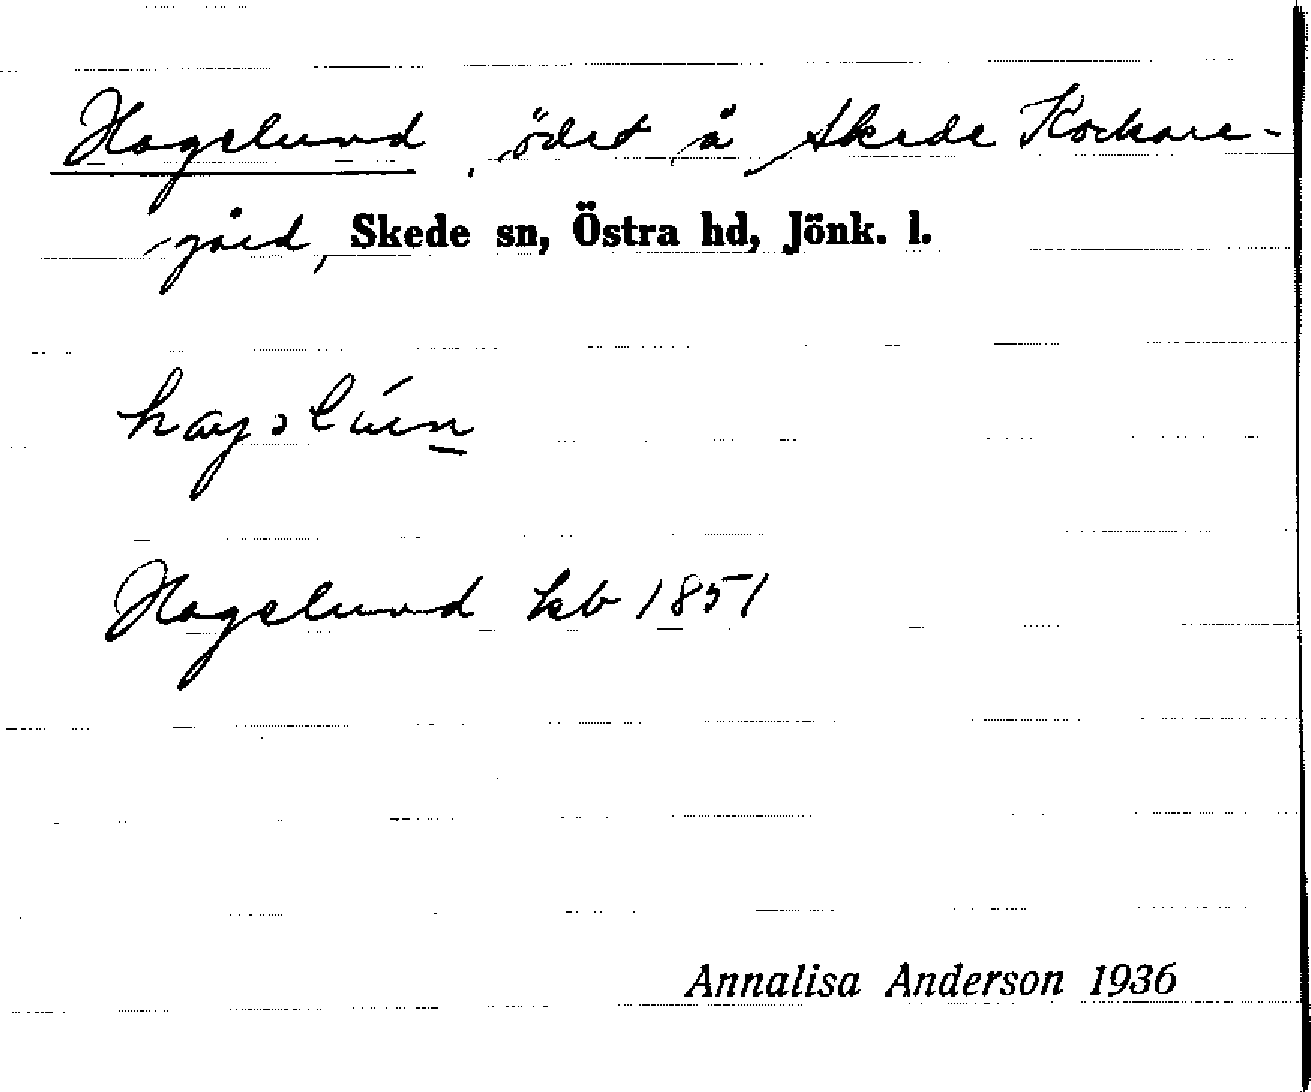 Hagelund, ödet å Skede Kockare-
gård, Skede sn, Östra hd, Jönk. l.
Hagelund kb 1851
Annalisa Anderson 1936